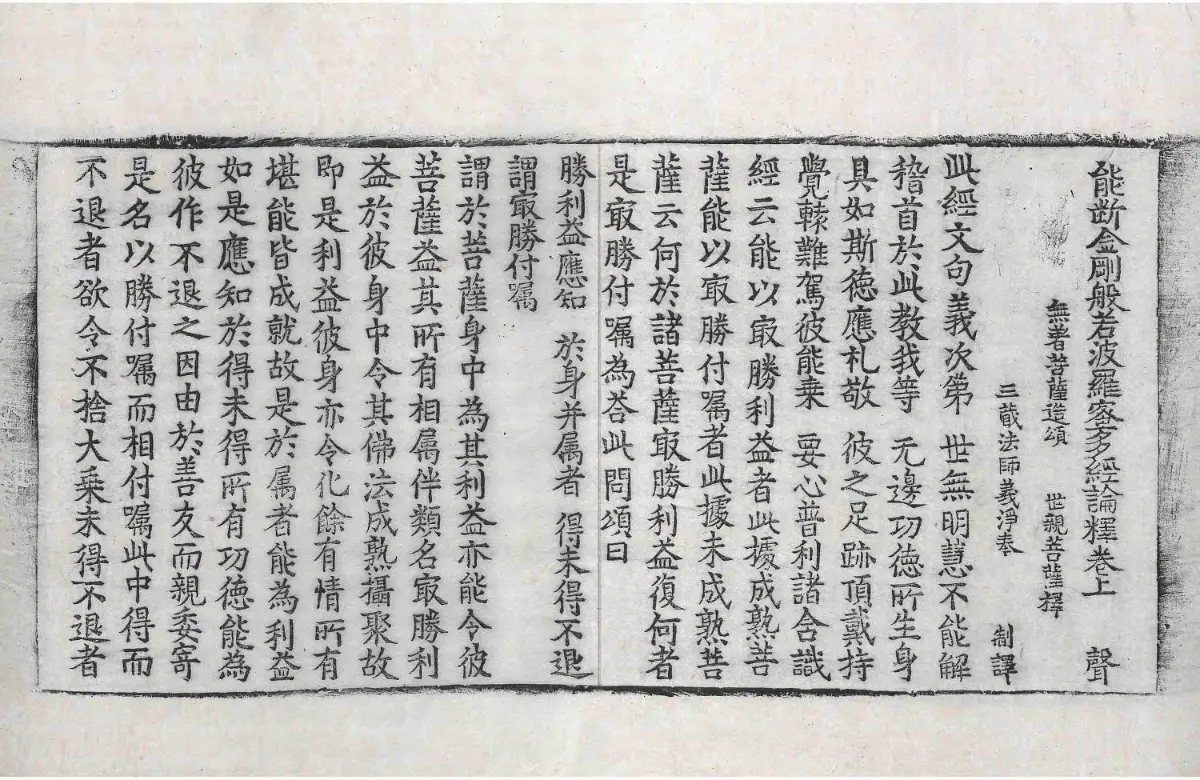 能断金剛般若波羅蜜多經論釋卷上 聲
無著菩薩造頌 世親菩薩釋
三藏法師義淨奉 制譯
此經文句義次第 世無明慧不能解
稽首於此教我等 无邊功德所生身
具如斯德應礼敬 彼之足跡頂戴持
覺轅難駕彼能乗 要心普利諸含識
經云能以㝡勝利益者此據成熟菩
薩能以㝡勝付嘱者此據未成熟菩
薩云何於諸菩薩㝡勝利益復何者
是㝡勝付嘱為荅此問頌曰
勝利益應知 於身并属者 得未得不退
謂㝡勝付嘱
謂於菩薩身中為其利益亦能令彼
菩薩益其所有相属伴類名㝡勝利
益於彼身中令其佛法成熟攝聚故
即是利益彼身亦令化餘有情所有
堪能皆成就故是於属者能為利益
如是應知於得未得所有功德能為
彼作不退之因由於善友而親委寄
是名以勝付嘱而相付嘱此中得而
不退者欲令不捨大乗未得不退者